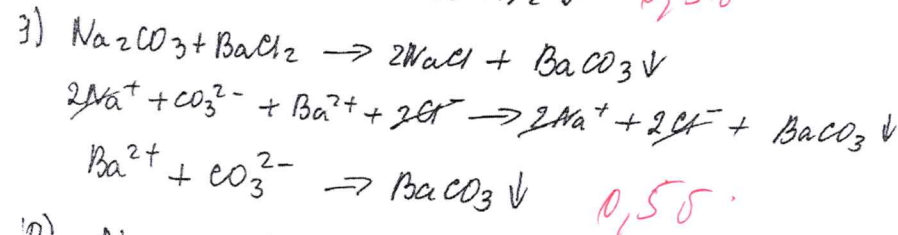 3) Na₂CO₃ + BaCl₂ → 2NaCl + BaCO₃↓
2Na⁺ + CO₃²⁻ + Ba²⁺ + 2Cl⁻ → 2Na⁺ + 2Cl⁻ + BaCO₃↓
Ba²⁺ + CO₃²⁻ → BaCO₃↓
0,5б.